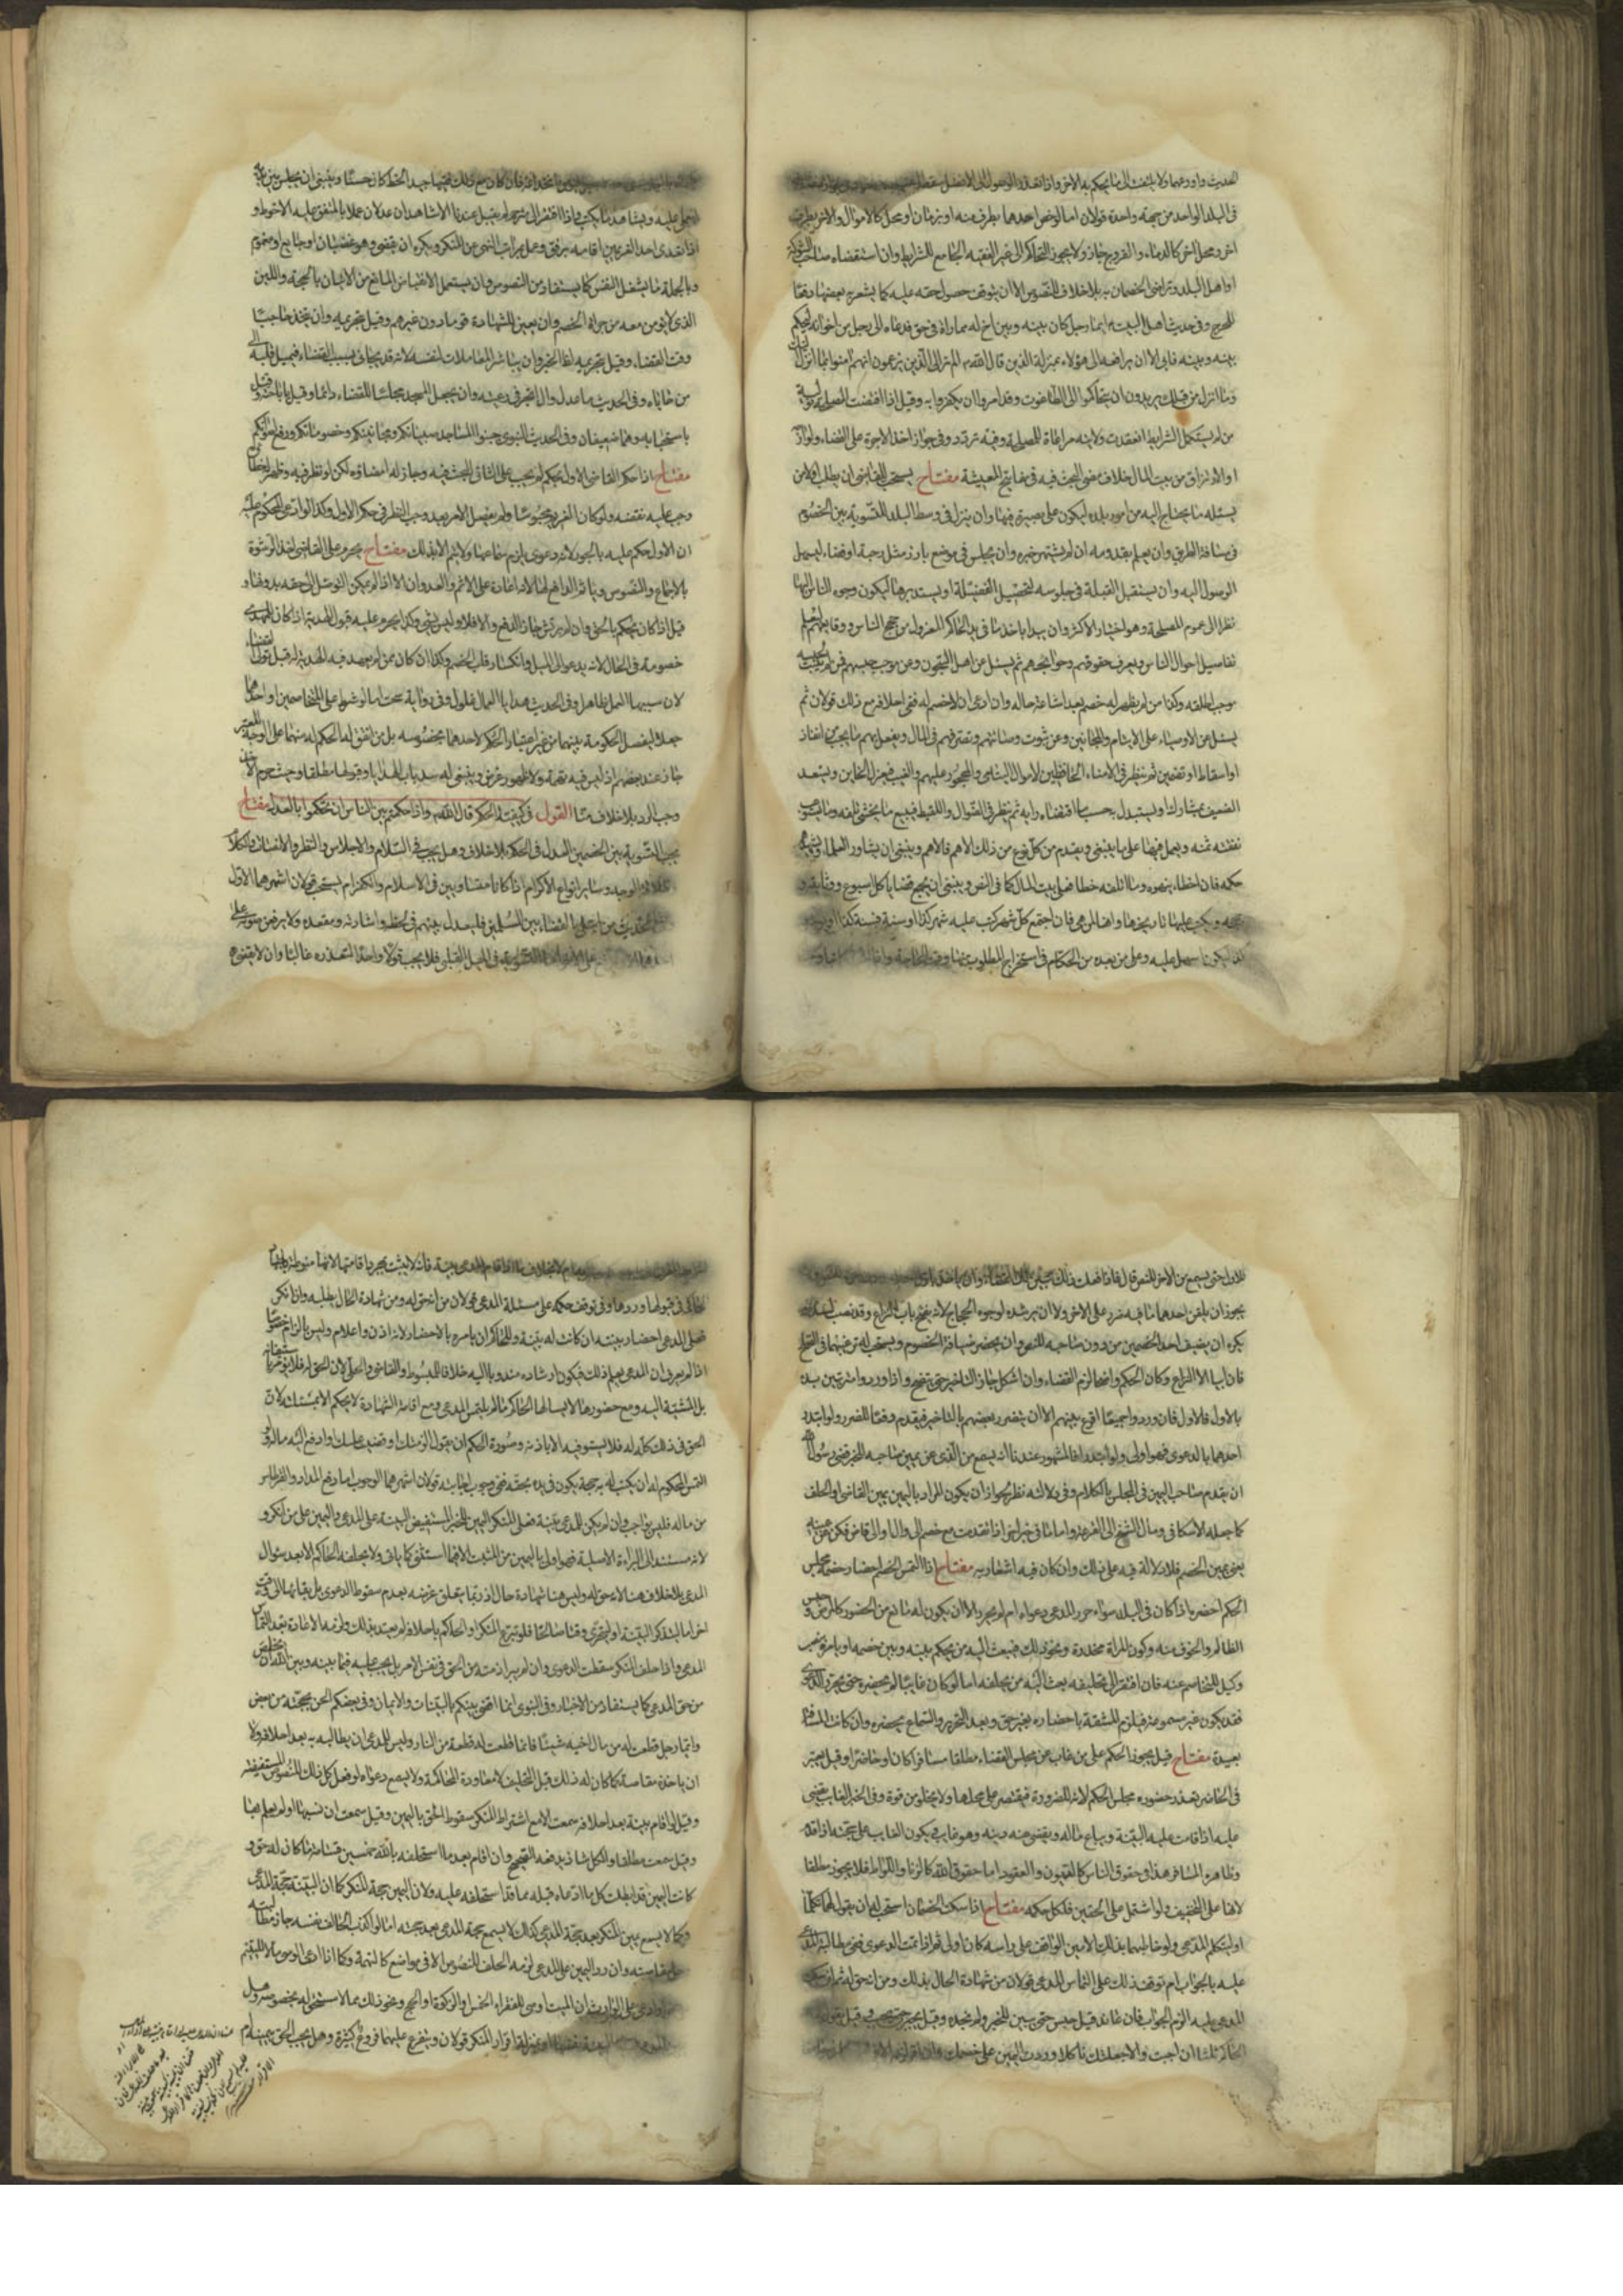 الحديث واورعهما ولا يلتفت الى ما يحكم به الاخر واذا تعذر الوصول الى الافضل سقط
فى البلد الواحد من جهة واحدة قولان اما لو خص احدهما بطرف منه او بزمان او محل كالاموال والاخر بطرف
اخر ومحل اخر كالدماء والفروج جاز ولا يجوز التحاكم الى غير الفقيه الجامع للشرايط وان استقضاه صاحب الشوكة
او اهل البلد وتراضى الخصمان به بلا خلاف للنصوص الا ان يتوقف حصول حقه عليه كما يشعر به بعضها دفعا
للحرج وفى حديث اهل البيت ايما رجل كان بينه وبين اخ له مماراة فى حق فدعاه الى رجل من اخوانه ليحكم
بينه وبينه فابى الا ان يرافعه الى هؤلاء بمنزلة الذين قال الله الم تر الى الذين يزعمون انهم امنوا بما انزل اليك
وما انزل من قبلك يريدون ان يتحاكموا الى الطاغوت وقد امروا ان يكفروا به وقيل اذا اقتضت المصلحة تولية
من لم يستكمل الشرايط انعقدت ولايته مراعاة للمصلحة وفيه تردد وفى جواز اخذ الاجرة على القضاء
او الارتزاق من بيت المال خلاف مضى البحث فيه فى مفاتيح المعيشة مفتاح يستحب للقاضى ان يطلب اولا من
يسئله ما يحتاج اليه من امور بلده ليكون على بصيرة فيها وان ينزل فى وسط البلد للتسوية بين الخصوم
فى مسافة الطريق وان يعلم بقدومه ان لم يشتهر خبره وان يجلس فى موضع بارز مثل رحبة او فضاء ليسهل
الوصول اليه وان يستقبل القبلة فى جلوسه لتحصيل الفضيلة او يستدبرها ليكون وجوه الناس اليها
نظرا الى عموم المصلحة وهو اختيار الاكثر وان يبدا باخذ ما فى يد الحاكم المعزول من حجج الناس وودايعهم ليعلم
تفاصيل احوال الناس ويعرف حقوقهم وحوائجهم ثم يسئل عن اهل السجون وعن موجب حبسهم فمن لم يثبت لحبسه
موجب اطلقه وكذا من لم يظهر له خصم بعد اشاعة حاله وان ادعى ان لا خصم له ففى احلافه مع ذلك قولان ثم
يسئل عن الاوصياء على الايتام والمجانين وعن ثبوت وصائتهم وتصرفهم فى المال ويفعل بهم ما يجب من انفاذ
او اسقاط او تضمين ثم ينظر فى الامناء الحافظين لاموال اليتامى والمحجور عليهم والغيب فيعزل الخاين ويسعد
الضعيف بمشارك او يستبدل به حسب ما اقتضاه رايه ثم ينظر فى الضوال واللقيط فيبيع ما يخشى تلفه وما يستوعب
نفقته ثمنه ويعمل فيها على ما ينبغى ويقدم من كل نوع من ذلك الاهم فالاهم وينبغى ان يشاور العلماء
حكمه فان اخطاء ينبهوه وما اتلفه خطا ضمن بيت المال كما فى النص وينبغى ان يجمع قضايا كل اسبوع ووثايقه
ويكتب عليها تاريخها واهلها هى فان اجتمع كل شهر كتب عليه شهر كذا او سنة فسنة كذا
ليكون اسهل عليه وعلى من بعده من الحكام فى استخراج المطلوب منها وقت الحاجة
اتخذه فان كان مع ذلك فقيها جيد الخط كان حسنا وينبغى ان يجلس بين يديه
ليملى عليه ويشاهد ما يكتب فاذا افتقر الى مترجم لم يقبل عندنا الا شاهدان عدلان عملا بالمتفق عليه الاحوط و
اذا تعدى احد الغريمين اقامه برفق وعمل بمراتب النهى عن المنكر ويكره ان يقضى وهو غضبان او جايع او مهموم
وبالجملة ما يشغل النفس كما يستفاد من النصوص وان يستعمل الانقباض المانع من الاتيان بالحجة واللين
الذى لا يؤمن معه من جراة الخصم وان يعين للشهادة قوما دون غيرهم وقيل بتحريمه وان يتخذ حاجبا
وقت القضاء وقيل بتحريمه لظاهر الخبر وان يباشر المعاملات لنفسه لانه قد يحابى بسبب القضاء فيميل قلبه الى
من حاباه وفى الحديث ما عدل وال اتجر فى رعيته وان يجعل المسجد مجلسا للقضاء دائما وقيل باباحته وقيل
باستحبابه وهما ضعيفان وفى الحديث النبوى جنبوا المساجد صبيانكم ومجانينكم وخصوماتكم ورفع اصواتكم
مفتاح اذا حكم القاضى الاول بحكم لم يجب على الثانى البحث فيه وجاز له امضاؤه لكن لو نظر فيه وظهر خطاؤه
وجب عليه نقضه ولو كان الغريم محبوسا ولم يفصل الامر بعد وجب النظر فى حكم الاول وكذا لو ادعى المحكوم عليه
ان الاول حكم عليه بالجور لانه دعوى يلزم سماعها ولا يتم الا بذلك مفتاح يحرم على القاضى اخذ الرشوة
بالاجماع والنصوص وياثم الدافع لها لانه اعانة على الاثم والعدوان الا اذا لم يمكن التوصل الى حقه بدونها و
قيل اذا كان يحكم بالحق وان لم يرتش جاز الدفع والا فلا وليس بشئ وكذا يحرم عليه قبول الهدية اذا كان للمهدى
خصومة فى الحال لانه يدعو الى الميل وانكسار قلب الخصم وكذا ان كان ممن لم يعهد منه الهدية له قبل تولى القضاء
لان سببها العمل ظاهرا وفى الحديث هدايا العمال غلول وفى رواية سحت اما لو شرط على المتخاصمين او احدهما
جعلا ليفصل الحكومة بينهما من غير اعتبار الحكم لاحدهما بخصوصه بل من اتفق له الحكم له منهما على الوجه المعتبر
جاز عند بعضهم اذ ليس فيه تهمة ولا ظهور غرض وينبغى له سد باب الهدايا وقبولها مطلقا وحيث حرم الاخذ
وجب الرد بلا خلاف منا القول فى كيفية الحكم قال الله واذا حكمتم بين الناس ان تحكموا بالعدل مفتاح
يجب التسوية بين الخصمين العدل فى الحكم بلا خلاف وهل يجب فى السلام والاجلاس والنظر والانصات والكلام
الوجه وساير انواع الاكرام اذا كانا متساويين فى الاسلام والكفر ام يستحب قولان اشهرهما الاول
للحديث من ابتلى بالقضاء بين المسلمين فليعدل بينهم فى لحظه واشارته ومقعده ولا يرفعن صوته على
التسوية فى الميل القلبى فلا يجب قولا واحدا لتعذره غالبا وان لا يقضى
للاول حتى تسمع من الاخر للنص قال فاذا فعلت ذلك تبين لك القضاء
يجوز ان يلقن احدهما ما فيه ضرر على الاخر ولا ان يرشده لوجوه الحجاج لانه يفتح باب النزاع وقد نصب لسده
يكره ان يضيف احد الخصمين من دون صاحبه للنص وان يحضر ضيافة الخصوم ويستحب له ترغيبهما فى الصلح
فان ابيا الا النزاع وكان الحكم واضحا لزم القضاء وان اشكل جاز التاخير حتى يتضح واذا ورد وا مترتبين بدء
بالاول فالاول فان وردوا جميعا اقرع بينهم الا ان يتضرر بعضهم بالتاخير فيقدم دفعا للضرر ولو ابتدر
احدهما بالدعوى فهو اولى ولو ابتدرا فالمشهور عندنا انه يسمع من الذى عن يمين صاحبه للخبر قضى رسول الله
ان يقدم صاحب اليمين فى المجلس بالكلام وفى دلالته نظر لجواز ان يكون المراد باليمين يمين القاضى او الحلف
كما جعله الاسكافى ومال الشيخ الى القرعة واما ما فى خبر اخر اذا تقدمت مع خصم الى وال او الى قاض فكن عن يمينه
يعنى يمين الخصم فلا دلالة فيه على ذلك وان كان فيه اشعار به مفتاح اذا التمس الخصم احضار خصمه مجلس
الحكم احضره اذا كان فى البلد سواء حرر المدعى دعواه ام لم يحرر الا ان يكون له مانع من الحضور كالمرض و حبس
الظالم والخوف منه وكون المراة مخدرة ونحو ذلك فيبعث اليه من يحكم بينه وبين خصمه او يامره بنصب
وكيل ليخاصم عنه فان افتقر الى تحليفه بعث اليه من يحلفه اما لو كان غايبا لم يحضره حتى يحرر الدعوى
فقد يكون غير مسموعة فيلزم المشقة باحضاره بغير حق وبعد التحرير والسماع يحضره وان كانت المسافة
بعيدة مفتاح قيل يجوز الحكم على من غاب عن مجلس القضاء مطلقا مسافرا كان او حاضرا وقيل يعتبر
فى الحاضر تعذر حضوره مجلس الحكم لانه للضرورة فيقتصر على محلها ولا يخلو من قوة وفى الخبر الغايب يقضى
عليه اذا قامت عليه البينة ويباع ماله ويقضى عنه دينه وهو غايب ويكون الغايب على حجته اذا قدم
وظاهره المسافر هذا فى حقوق الناس كالديون والعقود اما حقوق الله كالزنا واللواط فلا يجوز مطلقا
لانها على التخفيف ولو اشتمل على الحقين فلكل حكمه مفتاح اذا سكت الخصمان استحب له ان يقول لهما تكلما
او ليتكلم المدعى ولو خاطبهما بذلك الامين الواقف على راسه كان اولى ثم اذا تمت الدعوى ففى مطالبة المدعى
عليه بالجواب ام توقف ذلك على التماس المدعى قولان من شهادة الحال بذلك ومن انه حق له ثم ان سكت
المدعى عليه الزم الجواب فان عاند قيل حبس حتى يبين للخبر لم نجده وقيل يجبر حتى يجيب وقيل يقول
الحاكم ثلثا ان اجبت والا جعلتك ناكلا ورددت اليمين على خصمك
بلا خلاف اما اذا اقام المدعى بينة فانه لا يثبت بمجرد اقامتها لانها منوطة باجتهاد
الحاكم فى قبولها وردها وفى توقف حكمه على مسئلة المدعى قولان من انه حق له ومن شهادة الحال بطلبه واذا انكر
فعلى المدعى احضار بينته ان كانت له بينة وللحاكم ان يامره بالاحضار لانه اذن واعلام وليس بالزام خصوصا
اذا لم يعرف ان المدعى يعلم ذلك فيكون ارشاده مندوبا اليه خلافا للمبسوط والقاضى والحلى لان الحق له فلا يؤمر باستيفائه
بل المشية اليه ومع حضورها لا يسالها الحاكم ما لم يلتمس المدعى ومع اقامة الشهادة لا يحكم الا بمسئلته لان
الحق فى ذلك كله له فلا يستوفيه الا باذنه وصورة الحكم ان يقول الزمتك او قضيت عليك او ادفع اليه ماله ولو
التمس المحكوم له ان يكتب له به حجة يكون فى يده بحقه ففى وجوب اجابته قولان اشهرهما الوجوب اما دفع المداد والقرطاس
من ماله فليس بواجب وان لم يكن للمدعى بينة فعلى المنكر اليمين للخبر المستفيض البينة على المدعى واليمين على من انكر و
لانه مستند الى البراءة الاصلية فهو اولى باليمين من المثبت الا فيما استثنى كما ياتى ولا يحلفه الحاكم الا بعد سؤال
المدعى بلا خلاف هنا لانه حق له وليس هنا شهادة حال اذ ربما يتعلق غرضه بعدم سقوط الدعوى بل بقائها الى وقت
اخر اما ليتذكر البينة او ليتحرى وقتا صالحا فلو تبرع المنكر او الحاكم باحلافه لم يعتد بذلك ولزمه الاعادة بعد التماس
المدعى واذا حلف المنكر سقطت الدعوى وان لم يبرا ذمته من الحق فى نفس الامر بل يجب عليه فيما بينه وبين الله ان يتخلص
من حق المدعى كما يستفاد من الاخبار وفى النبوى انما اقضى بينكم بالبينات والايمان وبعضكم الحن بحجته من بعض
وايما رجل قطعت له من مال اخيه شيئا فانما قطعت له قطعة من النار وليس للمدعى ان يطالبه به بعد احلافه ولا
ان ياخذه مقاصة كما كان له ذلك قبل التحليف لا معاودة المحاكمة ولا يسمع دعواه لو فعل كل ذلك للنصوص المستفيضة
وقيل لو اقام بينة بعد احلافه سمعت الا مع اشتراط المنكر سقوط الحق باليمين وقيل سمعت ان نسيها او لم يعلم بها
وقيل سمعت مطلقا والكل شاذ يدفعه الصحيح وان اقام بعد ما استحلفه بالله خمسين قسامة ما كان له حق و
كانت اليمين قد ابطلت كل ما ادعاه قبله مما قد استحلفه عليه ولان اليمين حجة المنكر كما ان البينة حجة المدعى
وكما لا يسمع يمين المنكر بعد حجة المدعى كذلك لا يسمع حجة المدعى بعد حجته اما لو اكذب الحالف نفسه جاز مطالبته
ومقاصته وان رد اليمين على المدعى لزمه الحلف للنصوص الا فى مواضع كالتهمة وكما اذا ادعى الوصى مالا لليتيم
او ادعى على الوارث ان الميت اوصى للفقراء الخمس او الزكوة او الحج ونحو ذلك مما لا مستحق له بخصوصه وهل
البينة نفسها او بمنزلة اقرار المنكر قولان ويتفرع عليهما فروع كثيرة وهل يجب الحق بيمينه ام